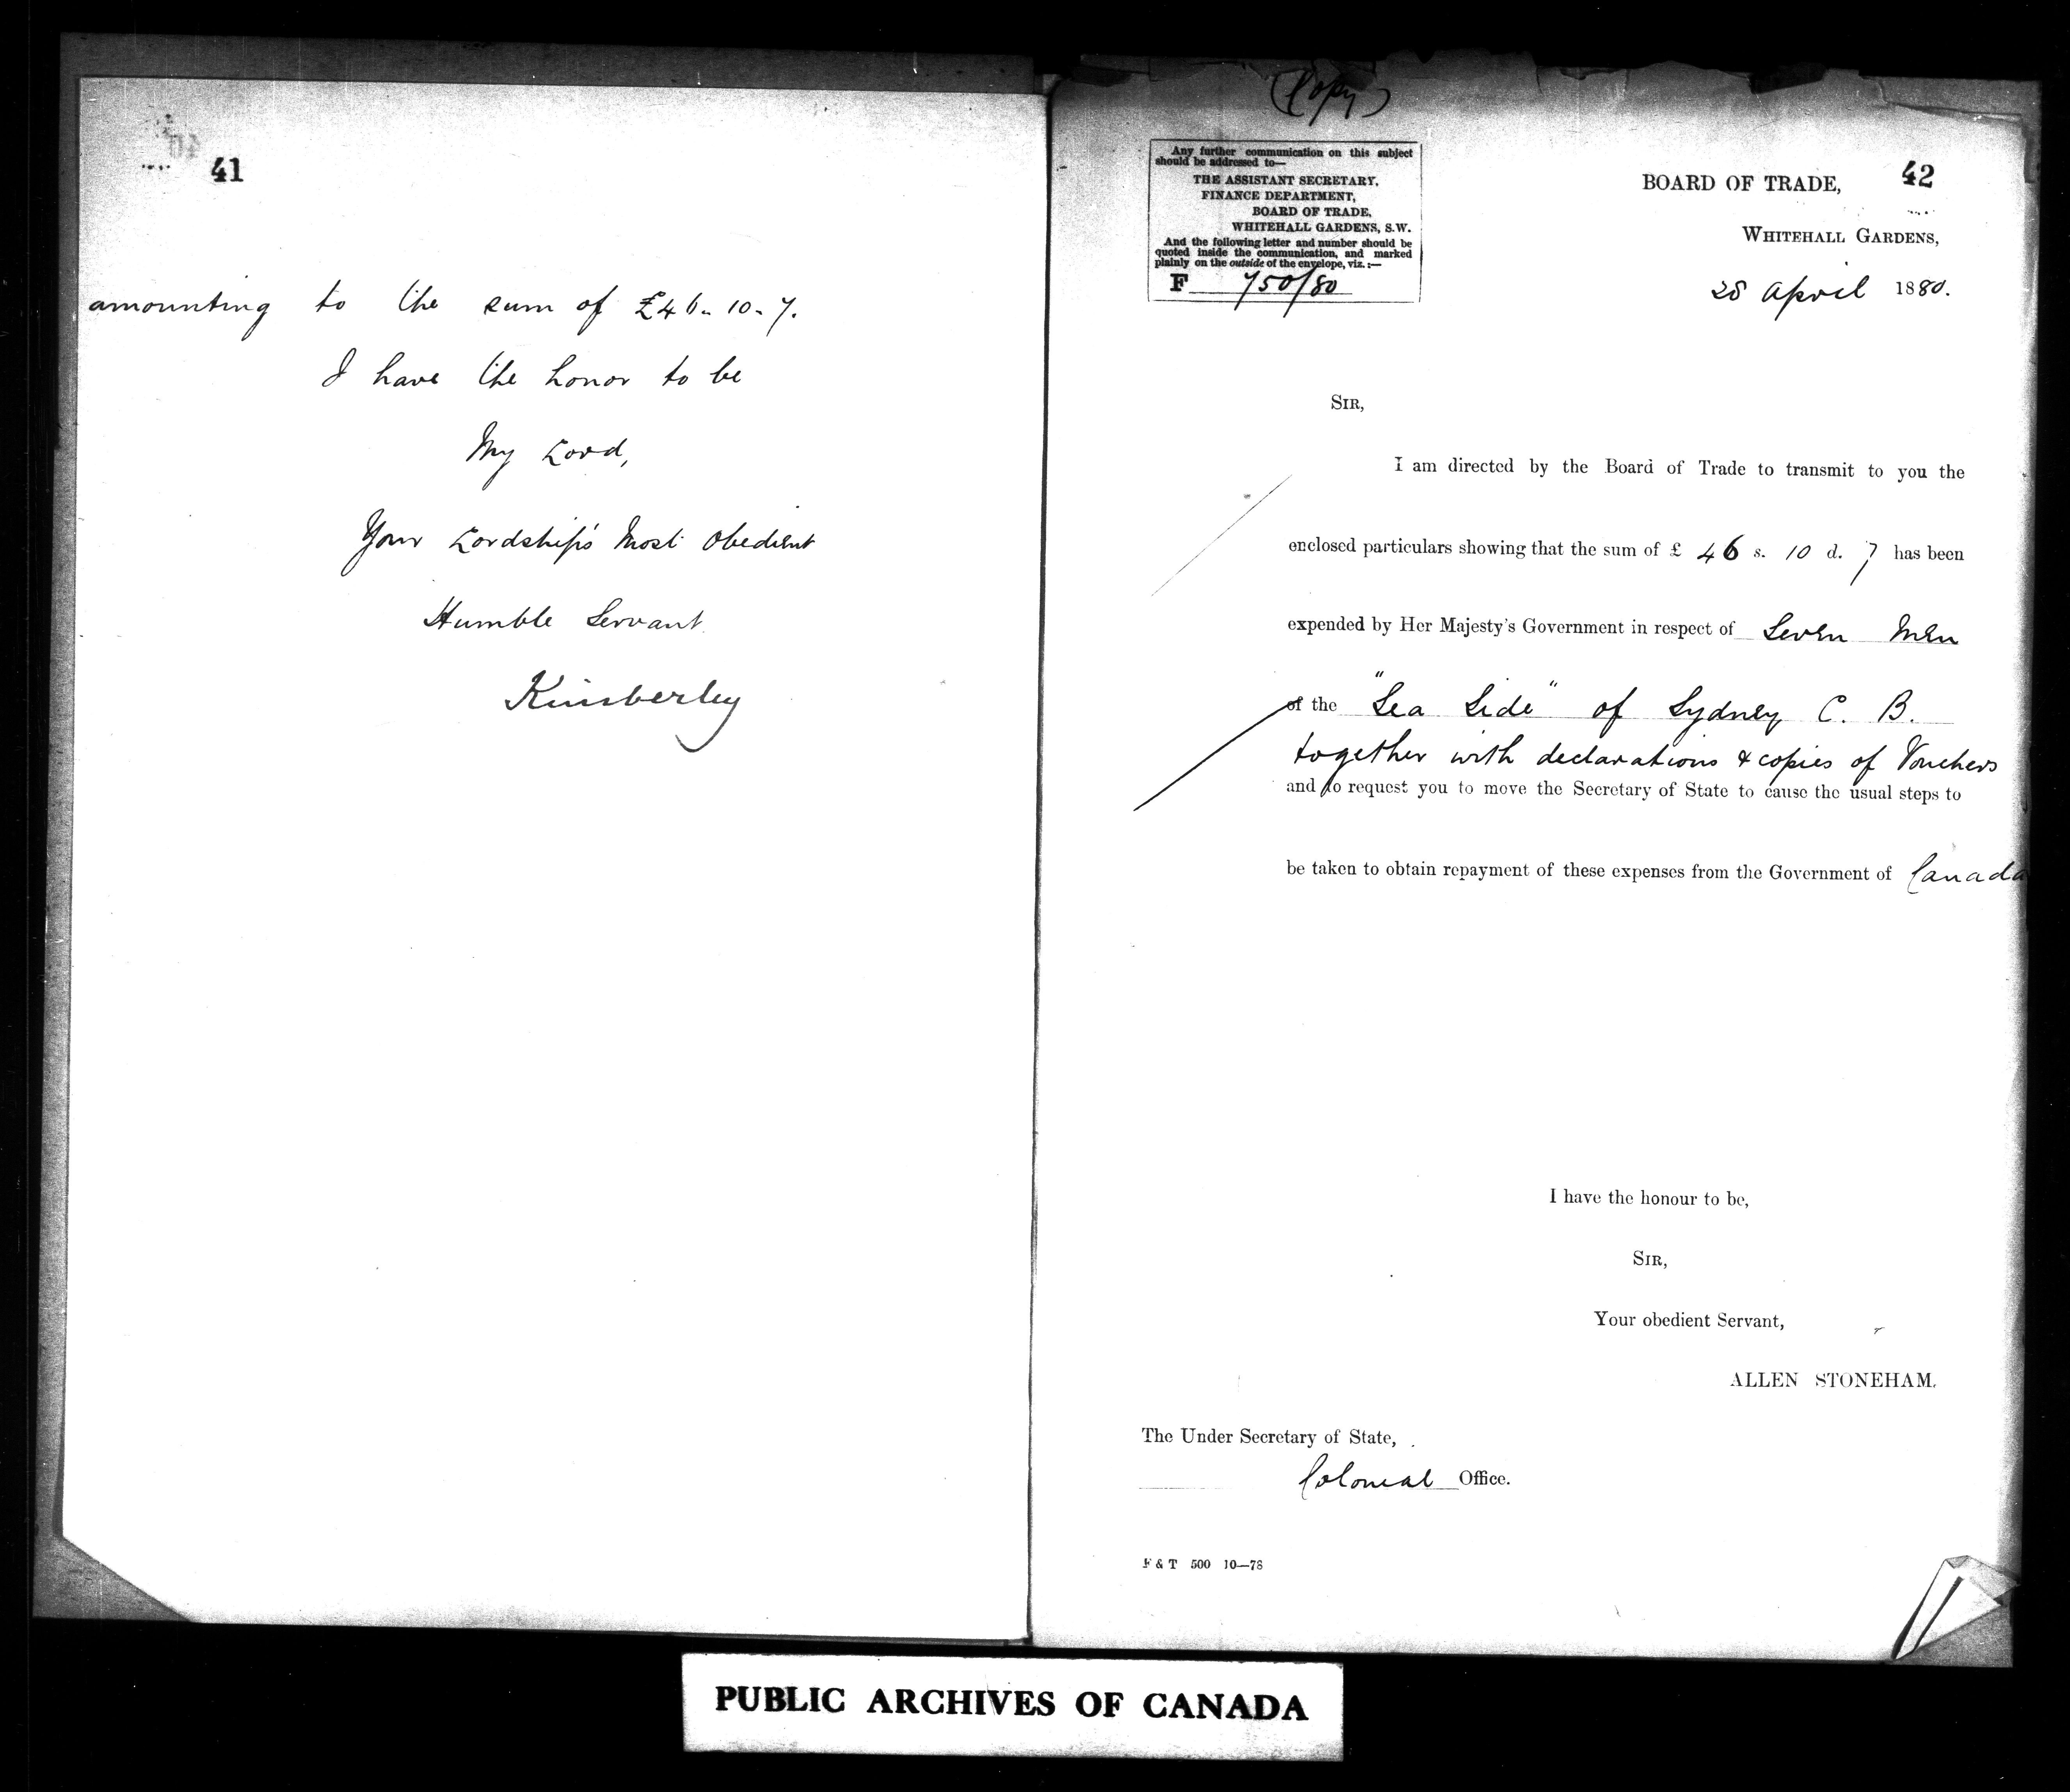 41
amounting to the sum of £46-10-7.
I have the honor to be
My Lord,
Your Lordship's Most Obedient
Humble Servant
Kimberley
(Copy)
Any further communication on this subject
should be addressed to—
THE ASSISTANT SECRETARY,
FINANCE DEPARTMENT,
BOARD OF TRADE,
WHITEHALL GARDENS, S.W.
And the following letter and number should be
quoted inside the communication, and marked
plainly on the outside of the envelope, viz.:—
F 750/80
42
BOARD OF TRADE,
WHITEHALL GARDENS,
28 April 1880.
SIR,
I am directed by the Board of Trade to transmit to you the
enclosed particulars showing that the sum of £ 46 s. 10 d. 7 has been
expended by Her Majesty's Government in respect of Seven Men
of the "Sea Side" of Sydney C. B.
together with declarations & copies of Vouchers
and to request you to move the Secretary of State to cause the usual steps to
be taken to obtain repayment of these expenses from the Government of Canada
I have the honour to be,
SIR,
Your obedient Servant,
ALLEN STONEHAM.
The Under Secretary of State,
Colonial Office.
F & T 500 10—78
PUBLIC ARCHIVES OF CANADA